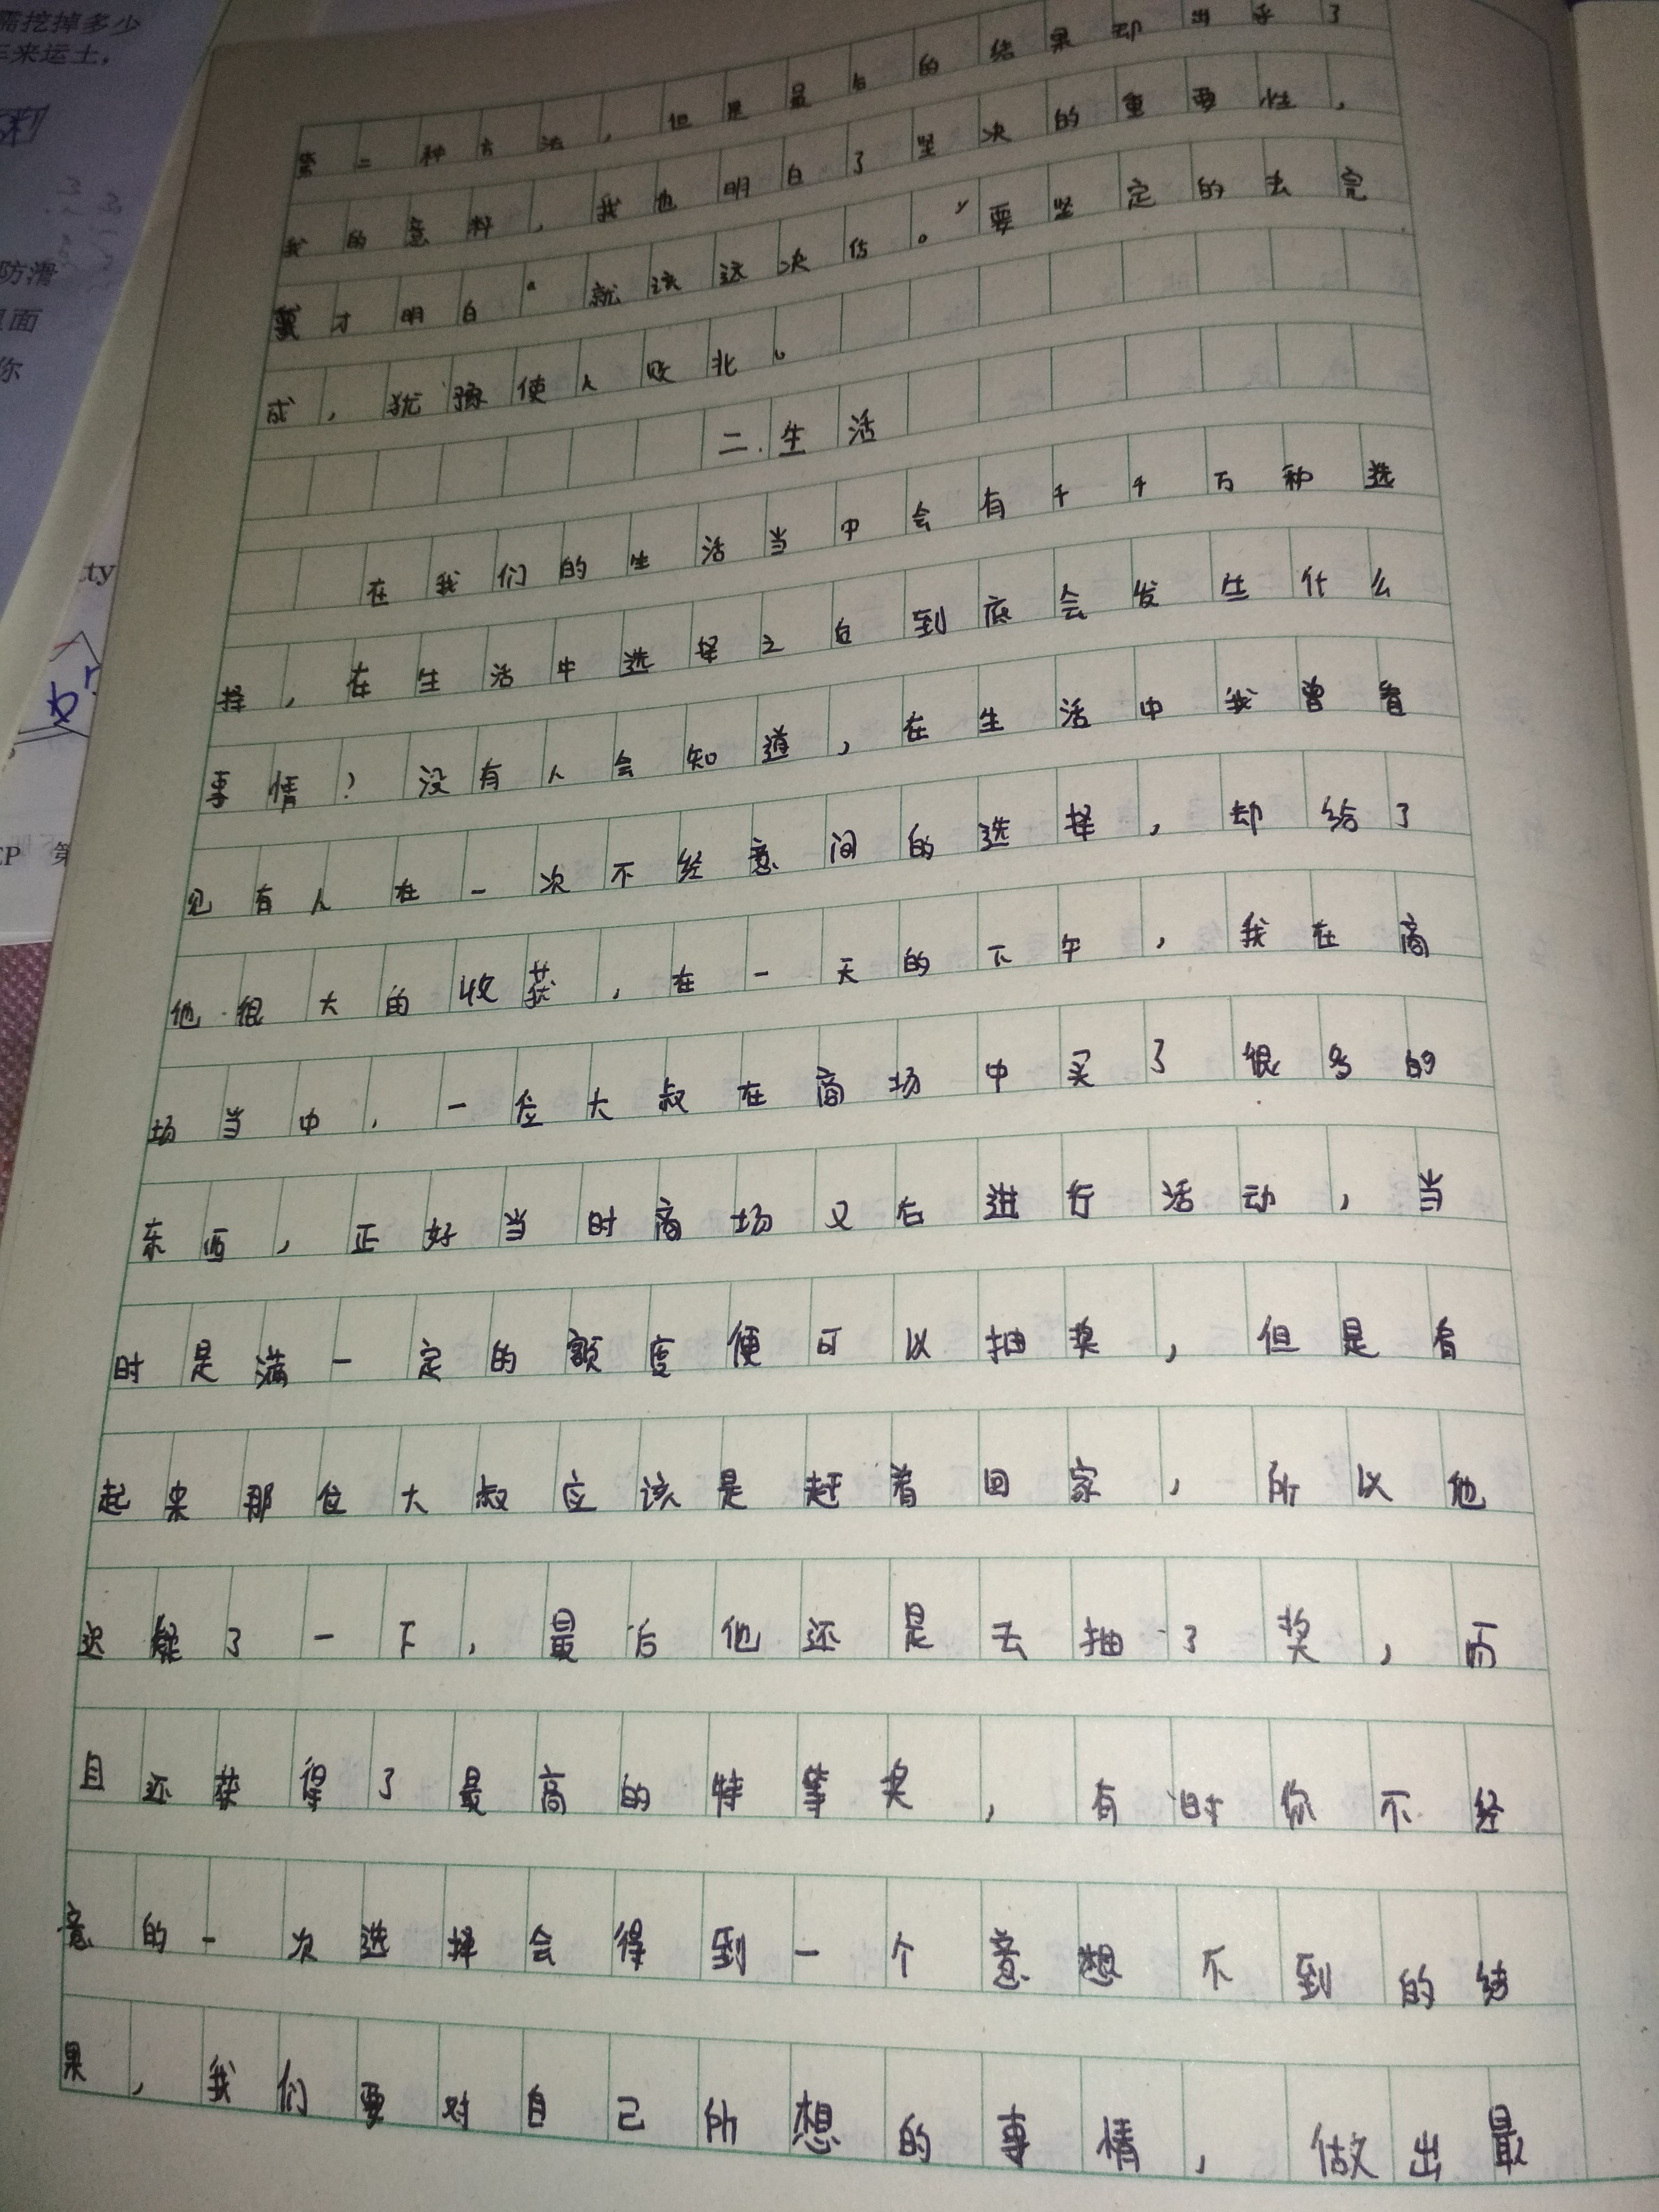 需挖掉多少
车来运土，
防滑
里面
你
ty
CP 第
第二种方法，但是最后的结果却出乎了
我的意料，我也明白了坚决的重要性，
我才明白“就该这决估。”要坚定的去完
成，犹豫使人败北。
二.生活
在我们的生活当中会有千千万种选
择，在生活中选择之后到底会发生什么
事情？没有人会知道，在生活中我曾看
见有人在一次不经意间的选择，却给了
他很大的收获，在一天的下午，我在商
场当中，一位大叔在商场中买了很多的
东西，正好当时商场又右进行活动，当
时是满一定的额度便可以抽奖，但是看
起来那位大叔应该是赶着回家，所以他
迟疑了一下，最后他还是去抽了奖，而
且还获得了最高的特等奖，有时你不经
意的一次选择会得到一个意想不到的结
果，我们要对自己所想的事情，做出最